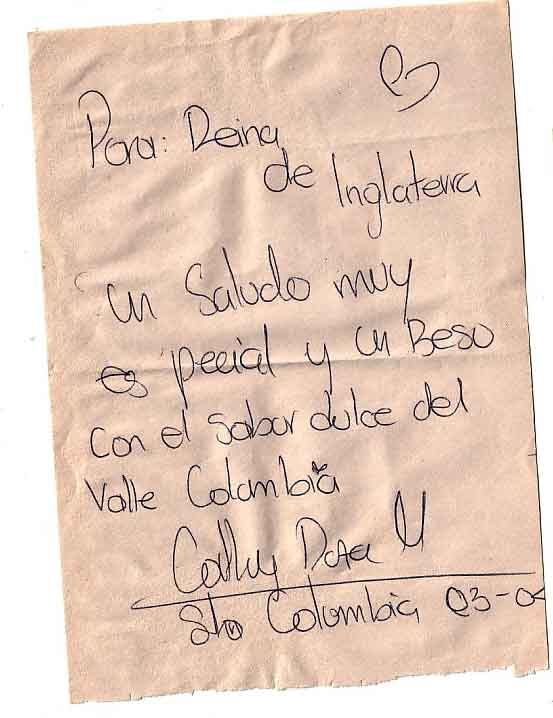 Para: Reina
de Inglaterra
un Saludo muy
es pecial y un Beso
con el sabor dulce del
Valle Colombia
Colombia 03-0